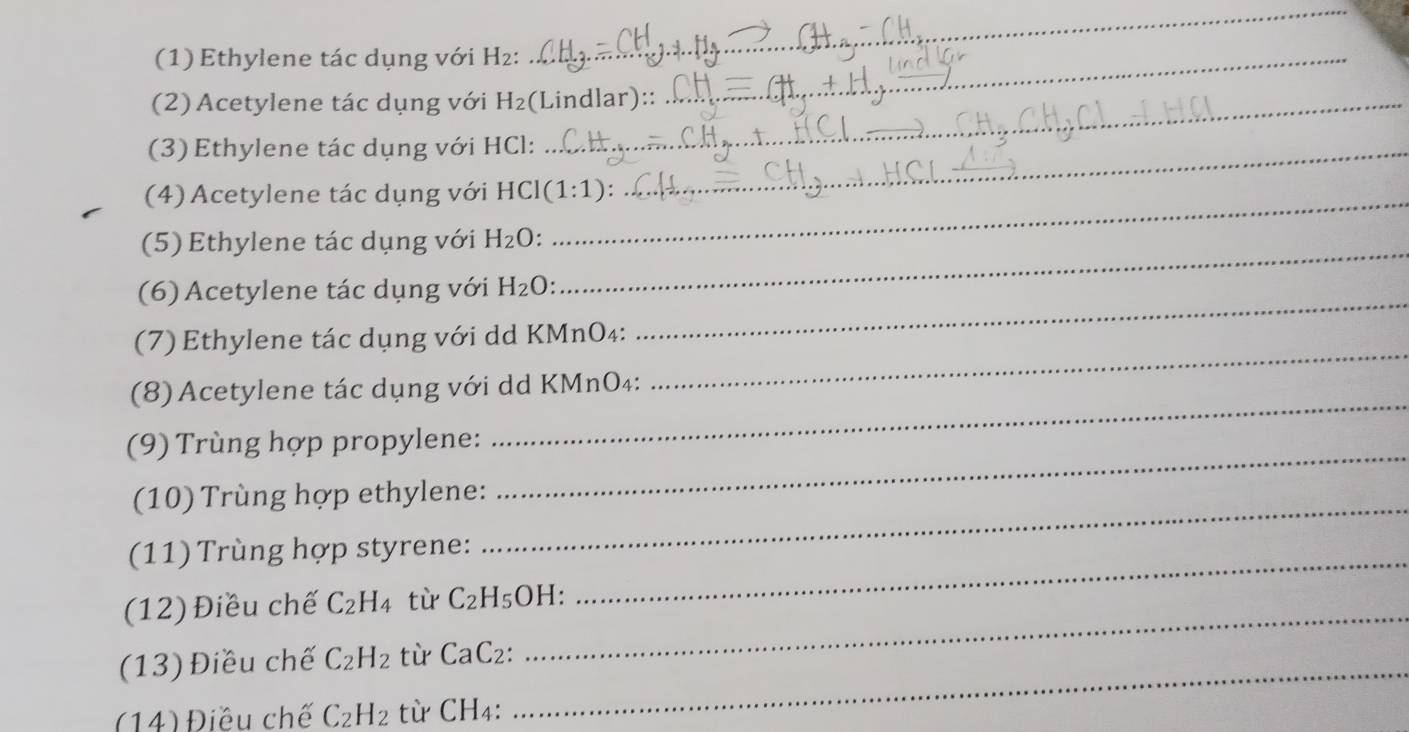 (1) Ethylene tác dụng với H₂: CH₂ = CH₂ + H₂ → CH₃ - CH₃
(2) Acetylene tác dụng với H₂(Lindlar):: CH₂ ≡ CH₂ + H₂ lindlar →
(3) Ethylene tác dụng với HCl: CH₂ = CH₂ + HCl → CH₃ CH₂Cl + HCl
(4) Acetylene tác dụng với HCl(1:1): CH₂ ≡ CH₂ + HCl 1:1 →
(5) Ethylene tác dụng với H₂O:
(6) Acetylene tác dụng với H₂O:
(7) Ethylene tác dụng với dd KMnO₄:
(8) Acetylene tác dụng với dd KMnO₄:
(9) Trùng hợp propylene:
(10) Trùng hợp ethylene:
(11) Trùng hợp styrene:
(12) Điều chế C₂H₄ từ C₂H₅OH:
(13) Điều chế C₂H₂ từ CaC₂:
(14) Điều chế C₂H₂ từ CH₄: